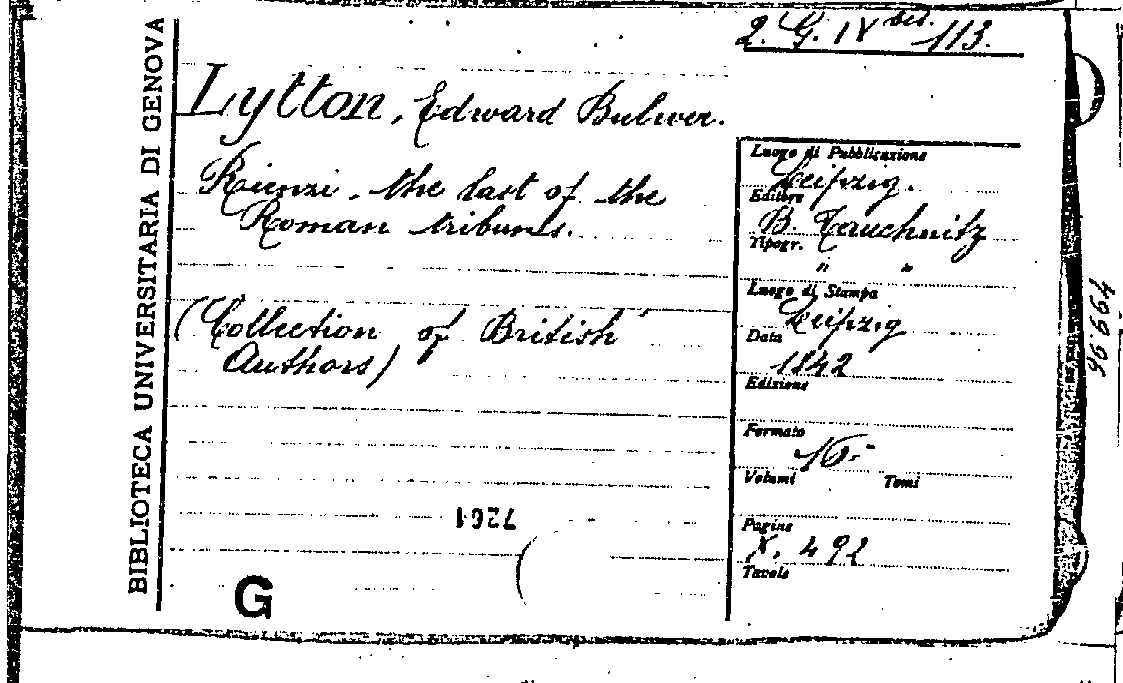 2. G. IV bis. 113.
BIBLIOTECA UNIVERSITARIA DI GENOVA
Lytton, Edward Bulwer.
Rienzi, the last of the
Roman tribuns.
(Collection of British
Authors)
7261
G
Luogo di Pubblicazione
Leipzig.
Editore
B. Tauchnitz
Tipogr.
" "
Luogo di Stampa
Leipzig
Data
1842
Edizione
Formato
16.-
Volumi Tomi
Pagine
X. 492
Tavole
96664